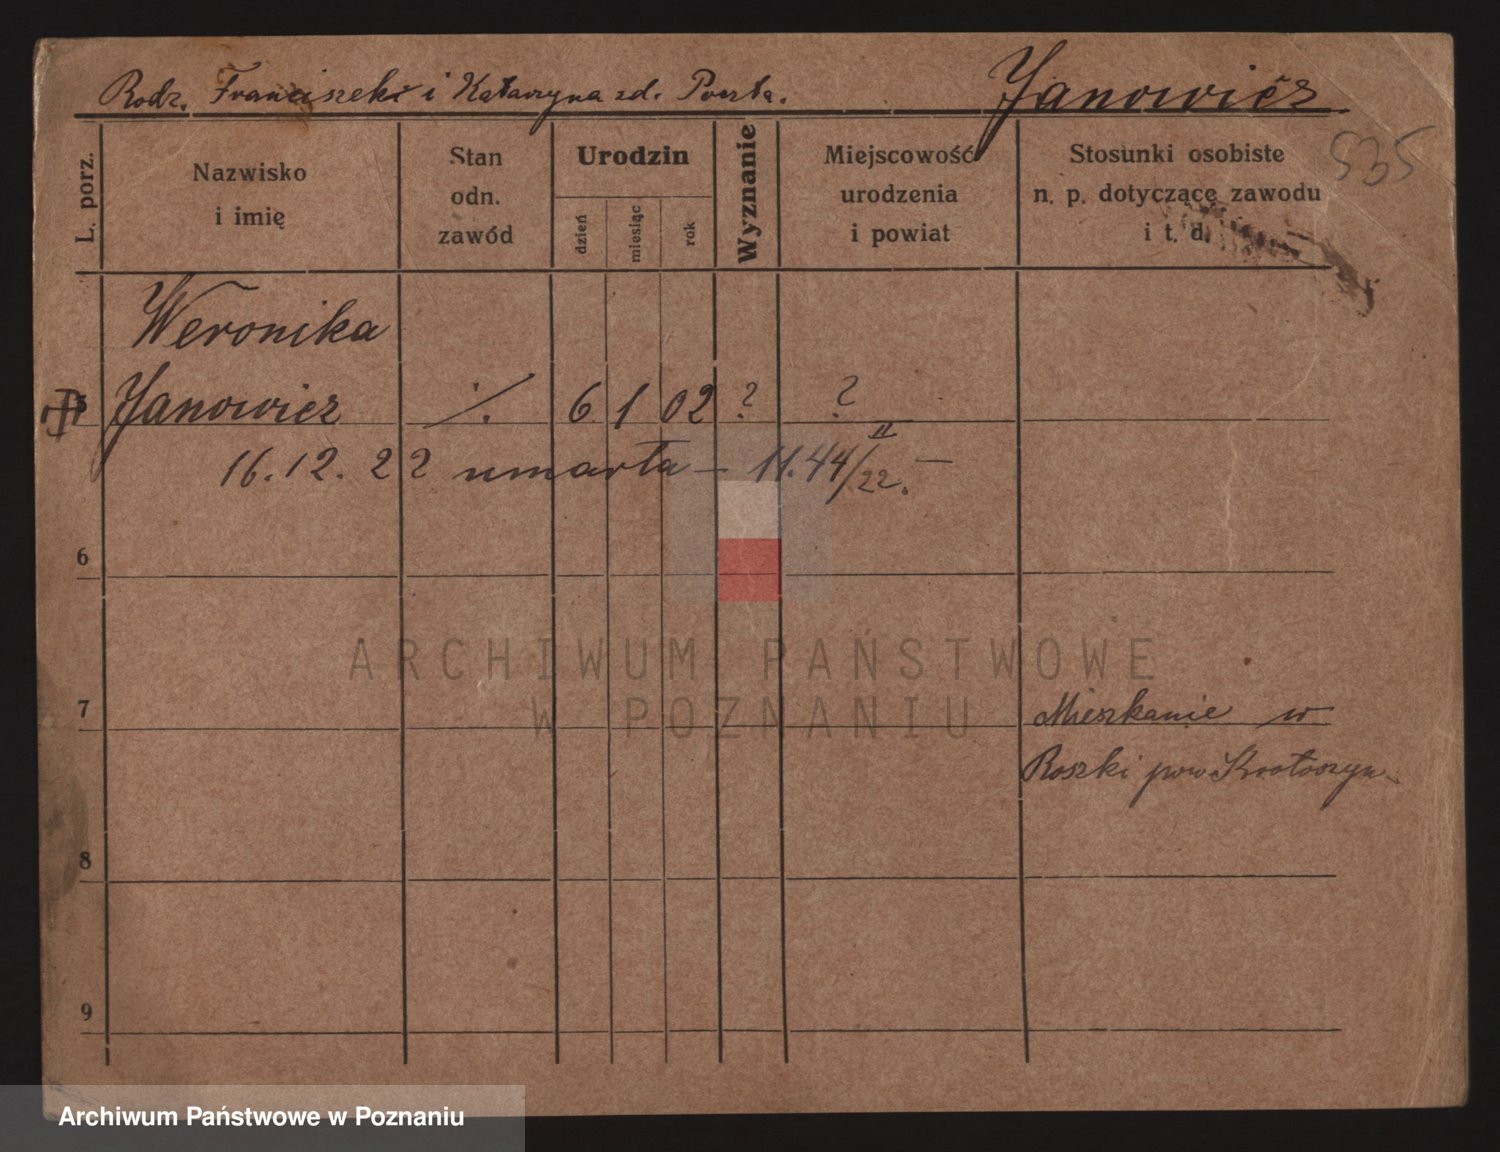 Rodz. Franciszek i Katarzyna zd. Poszta.
Janowicz
535
L. porz.
Nazwisko
i imię
Stan
odn.
zawód
Urodzin
dzień
miesiąc
rok
Wyznanie
Miejscowość
urodzenia
i powiat
Stosunki osobiste
n. p. dotyczącę zawodu
i t. d.
Weronika
Janowicz ·/. 6 1 02 ? ?
16.12.22 umarła – 11.44/22. – II
6
ARCHIWUM PAŃSTWOWE
W POZNANIU
7
Mieszkanie w
Roszki pow Krotoszyn
8
9
Archiwum Państwowe w Poznaniu